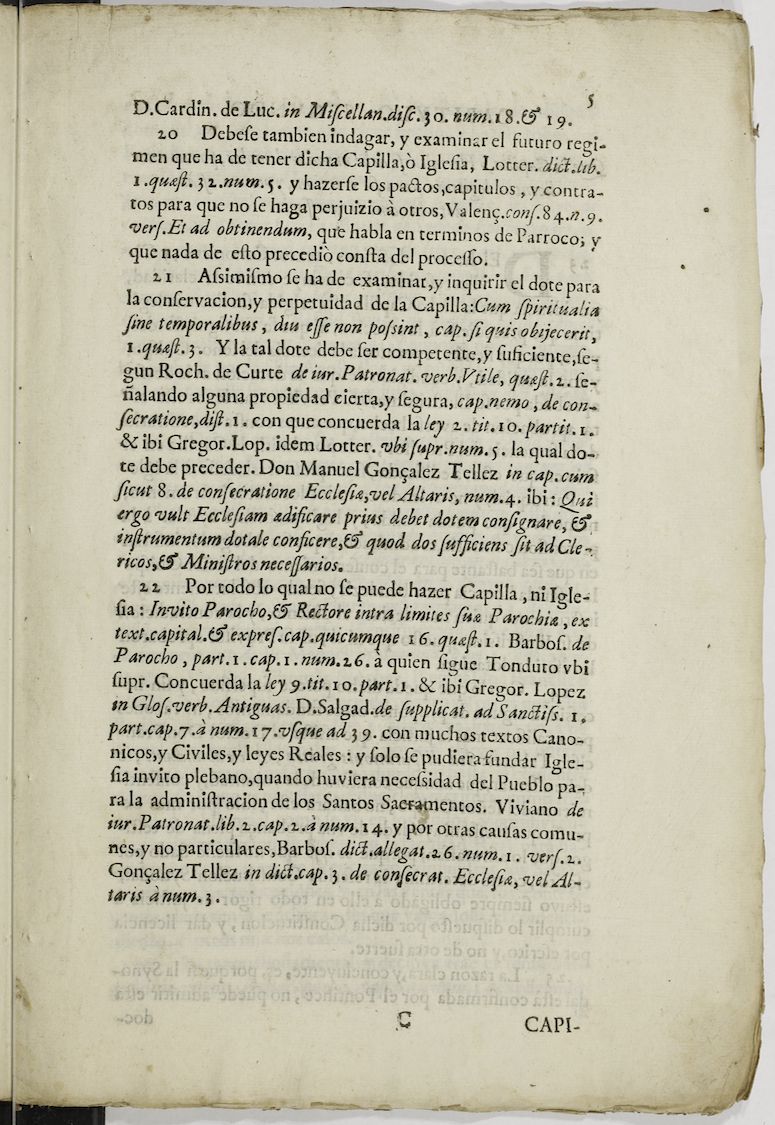 5
D.Cardin. de Luc. in Miſcellan.diſc.30. num.18.& 19.
20 Debeſe tambien indagar, y examinar el futuro regi-
men que ha de tener dicha Capilla,ò Igleſia, Lotter. dict.lib.
1.quæſt. 32.num.5. y hazerſe los pactos,capitulos, y contra-
tos para que no ſe haga perjuizio à otros,Valenç.conſ.84.n.9.
verſ.Et ad obtinendum, que habla en terminos de Parroco; y
que nada de eſto precediò conſta del proceſſo.
21 Aſsimiſmo ſe ha de examinar,y inquirir el dote para
la conſervacion,y perpetuidad de la Capilla:Cum ſpiritualia
ſine temporalibus, diu eſſe non poſsint, cap.ſi quis obijecerit,
1.quæſt.3. Y la tal dote debe ſer competente,y ſuficiente,ſe-
gun Roch. de Curte de iur.Patronat. verb.Vtile, quæſt.2. ſe-
ñalando alguna propiedad cierta,y ſegura, cap.nemo, de con-
ſecratione,diſt.1. con que concuerda la ley 2. tit.10. partit.1.
& ibi Gregor.Lop. idem Lotter. vbi ſupr.num.5. la qual do-
te debe preceder. Don Manuel Gonçalez Tellez in cap.cum
ſicut 8. de conſecratione Eccleſiæ,vel Altaris, num.4. ibi: Qui
ergo vult Eccleſiam ædificare prius debet dotem conſignare, &
inſtrumentum dotale conficere,& quod dos ſufficiens ſit ad Cle-
ricos,& Miniſtros neceſſarios.
22 Por todo lo qual no ſe puede hazer Capilla, ni Igle-
ſia: Invito Parocho,& Rectore intra limites ſuæ Parochiæ, ex
text.capital.& expreſ.cap.quicumque 16.quæſt.1. Barboſ. de
Parocho, part.1.cap.1.num.26. à quien ſigue Tonduto vbi
ſupr. Concuerda la ley 9.tit.10.part.1. & ibi Gregor. Lopez
in Gloſ.verb. Antiguas. D.Salgad.de ſupplicat. ad Sanctiſs. 1.
part.cap.7.à num.17.vſque ad 39. con muchos textos Cano-
nicos,y Civiles,y leyes Reales: y ſolo ſe pudiera fundar Igle-
ſia invito plebano,quando huviera neceſsidad del Pueblo pa-
ra la adminiſtracion de los Santos Sacramentos. Viviano de
iur.Patronat.lib.2.cap.2.à num.14. y por otras cauſas comu-
nes,y no particulares,Barboſ. dict.allegat.26.num.1. verſ.2.
Gonçalez Tellez in dict.cap.3. de conſecrat. Eccleſiæ, vel Al-
taris à num.3.
C CAPI-